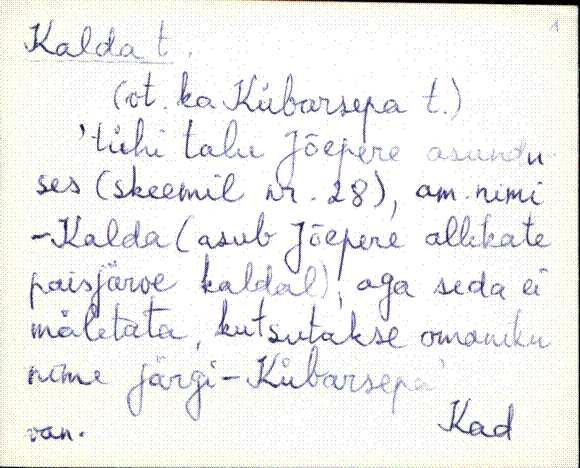 1
Kalda t.
(vt. ka Kübarsepa t.)
'tühi talu Jõepere asundu-
ses (skeemil nr. 28), am. nimi
-Kalda (asub Jõepere allikate
paisjärve kaldal), aga seda ei
mäletata, kutsutakse omaniku
nime järgi - Kübarsepa'
van. Kad